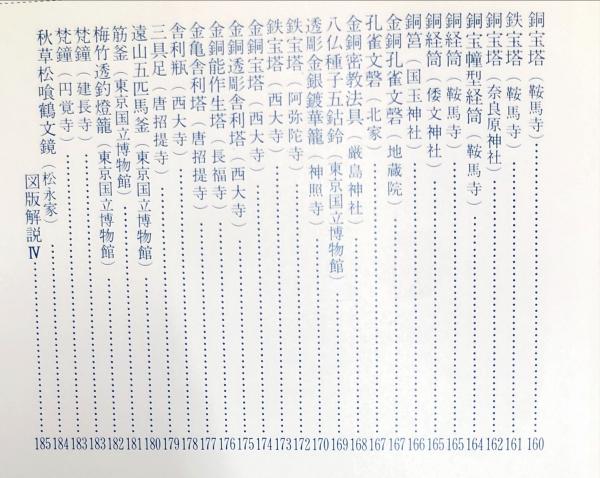 銅宝塔（鞍馬寺）……160
鉄宝塔（鞍馬寺）……161
銅宝塔（奈良原神社）……162
銅宝幢型経筒（鞍馬寺）……164
銅経筒（鞍馬寺）……165
銅経筒（倭文神社）……165
銅筥（国玉神社）……166
金銅孔雀文磬（地蔵院）……167
孔雀文磬（北家）……167
金銅密教法具（厳島神社）……168
八仏種子五鈷鈴（東京国立博物館）……169
透彫金銀鍍華籠（神照寺）……170
鉄宝塔（阿弥陀寺）……172
鉄宝塔（西大寺）……173
金銅宝塔（西大寺）……174
金銅透彫舎利塔（西大寺）……175
金銅能作生塔（長福寺）……176
金亀舎利塔（唐招提寺）……177
舎利瓶（西大寺）……178
三具足（唐招提寺）……179
遠山五匹馬釜（東京国立博物館）……180
筋釜（東京国立博物館）……181
梅竹透釣燈籠（東京国立博物館）……182
梵鐘（建長寺）……183
梵鐘（円覚寺）……183
秋草松喰鶴文鏡（松永家）……184
図版解説Ⅳ……185